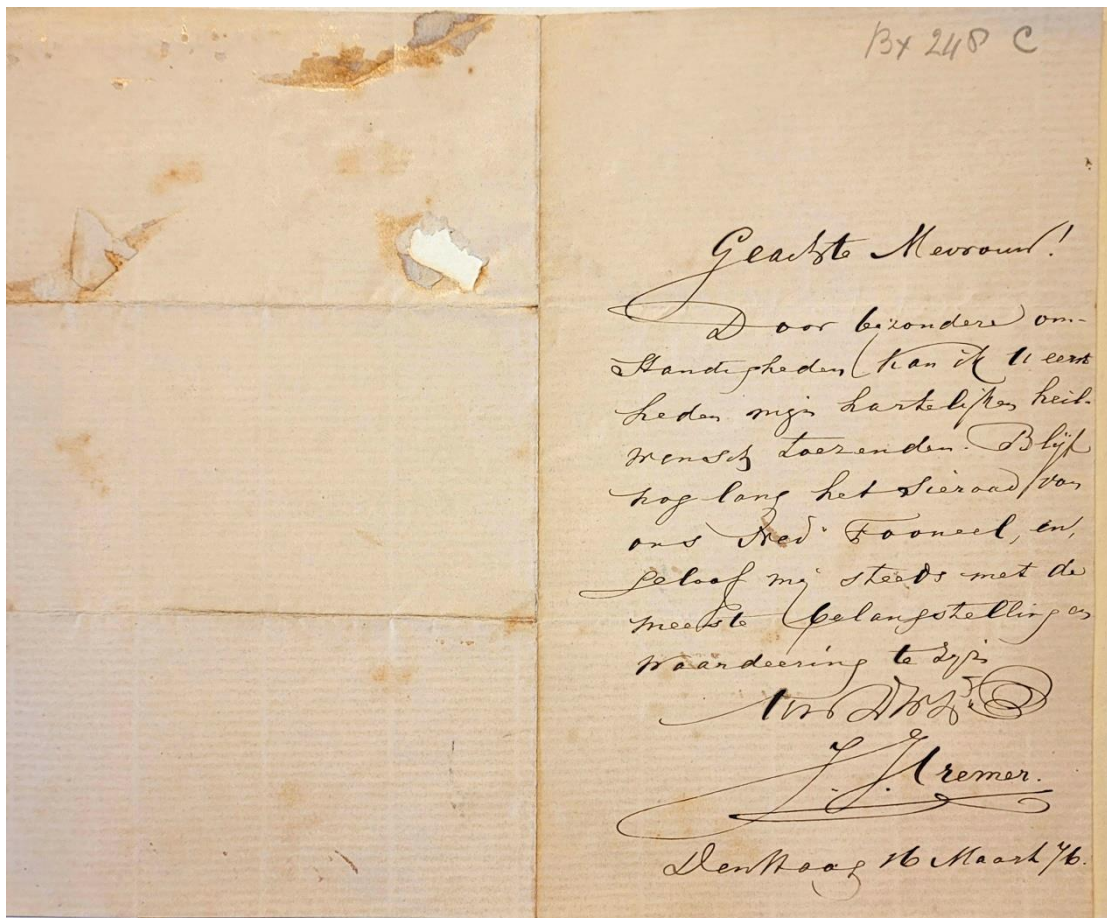 Bx 248 C
Geachte Mevrouw!
Door bijzondere om-
standigheden kan ik U eerst
heden mijn hartelijken heil-
wensch toezenden. Blijf
nog lang het sieraad van
ons Ned. Tooneel, en,
geloof mij steeds met de
meeste belangstelling en
waardeering te zijn
Uw DW
J. J. Cremer.
Den Haag 16 Maart 76.